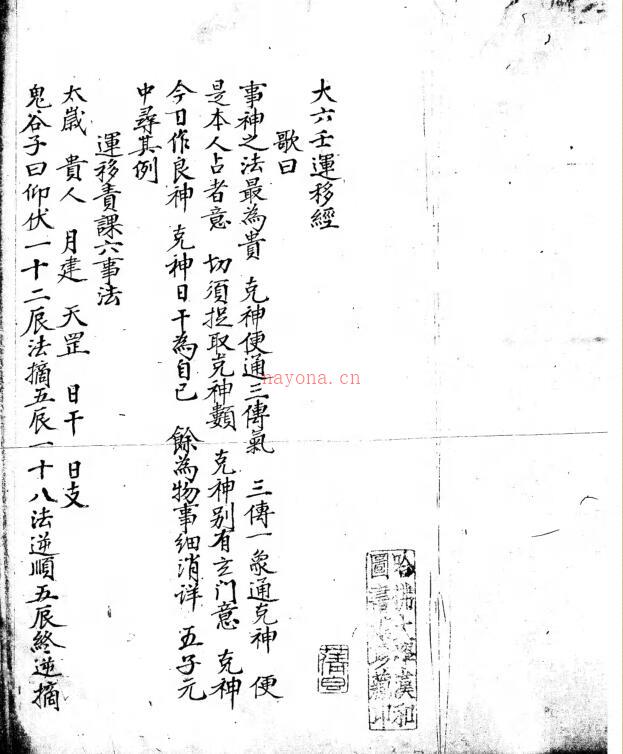 大六壬運移經
歌曰
事神之法最為貴 克神便通三傳氣 三傳一象通克神 便
是本人占者意 切須捉取克神類 克神別有玄门意 克神
今日作良神 克神日干為自己 餘為物事細消詳 五子元
中尋其例
運移責課六事法
太歲 貴人 月建 天罡 日干 日支
鬼谷子曰仰伏一十二辰法摘五辰一十八法逆順五辰終逆摘
哈佛大學漢和
圖書館珍藏印
nayona.cn